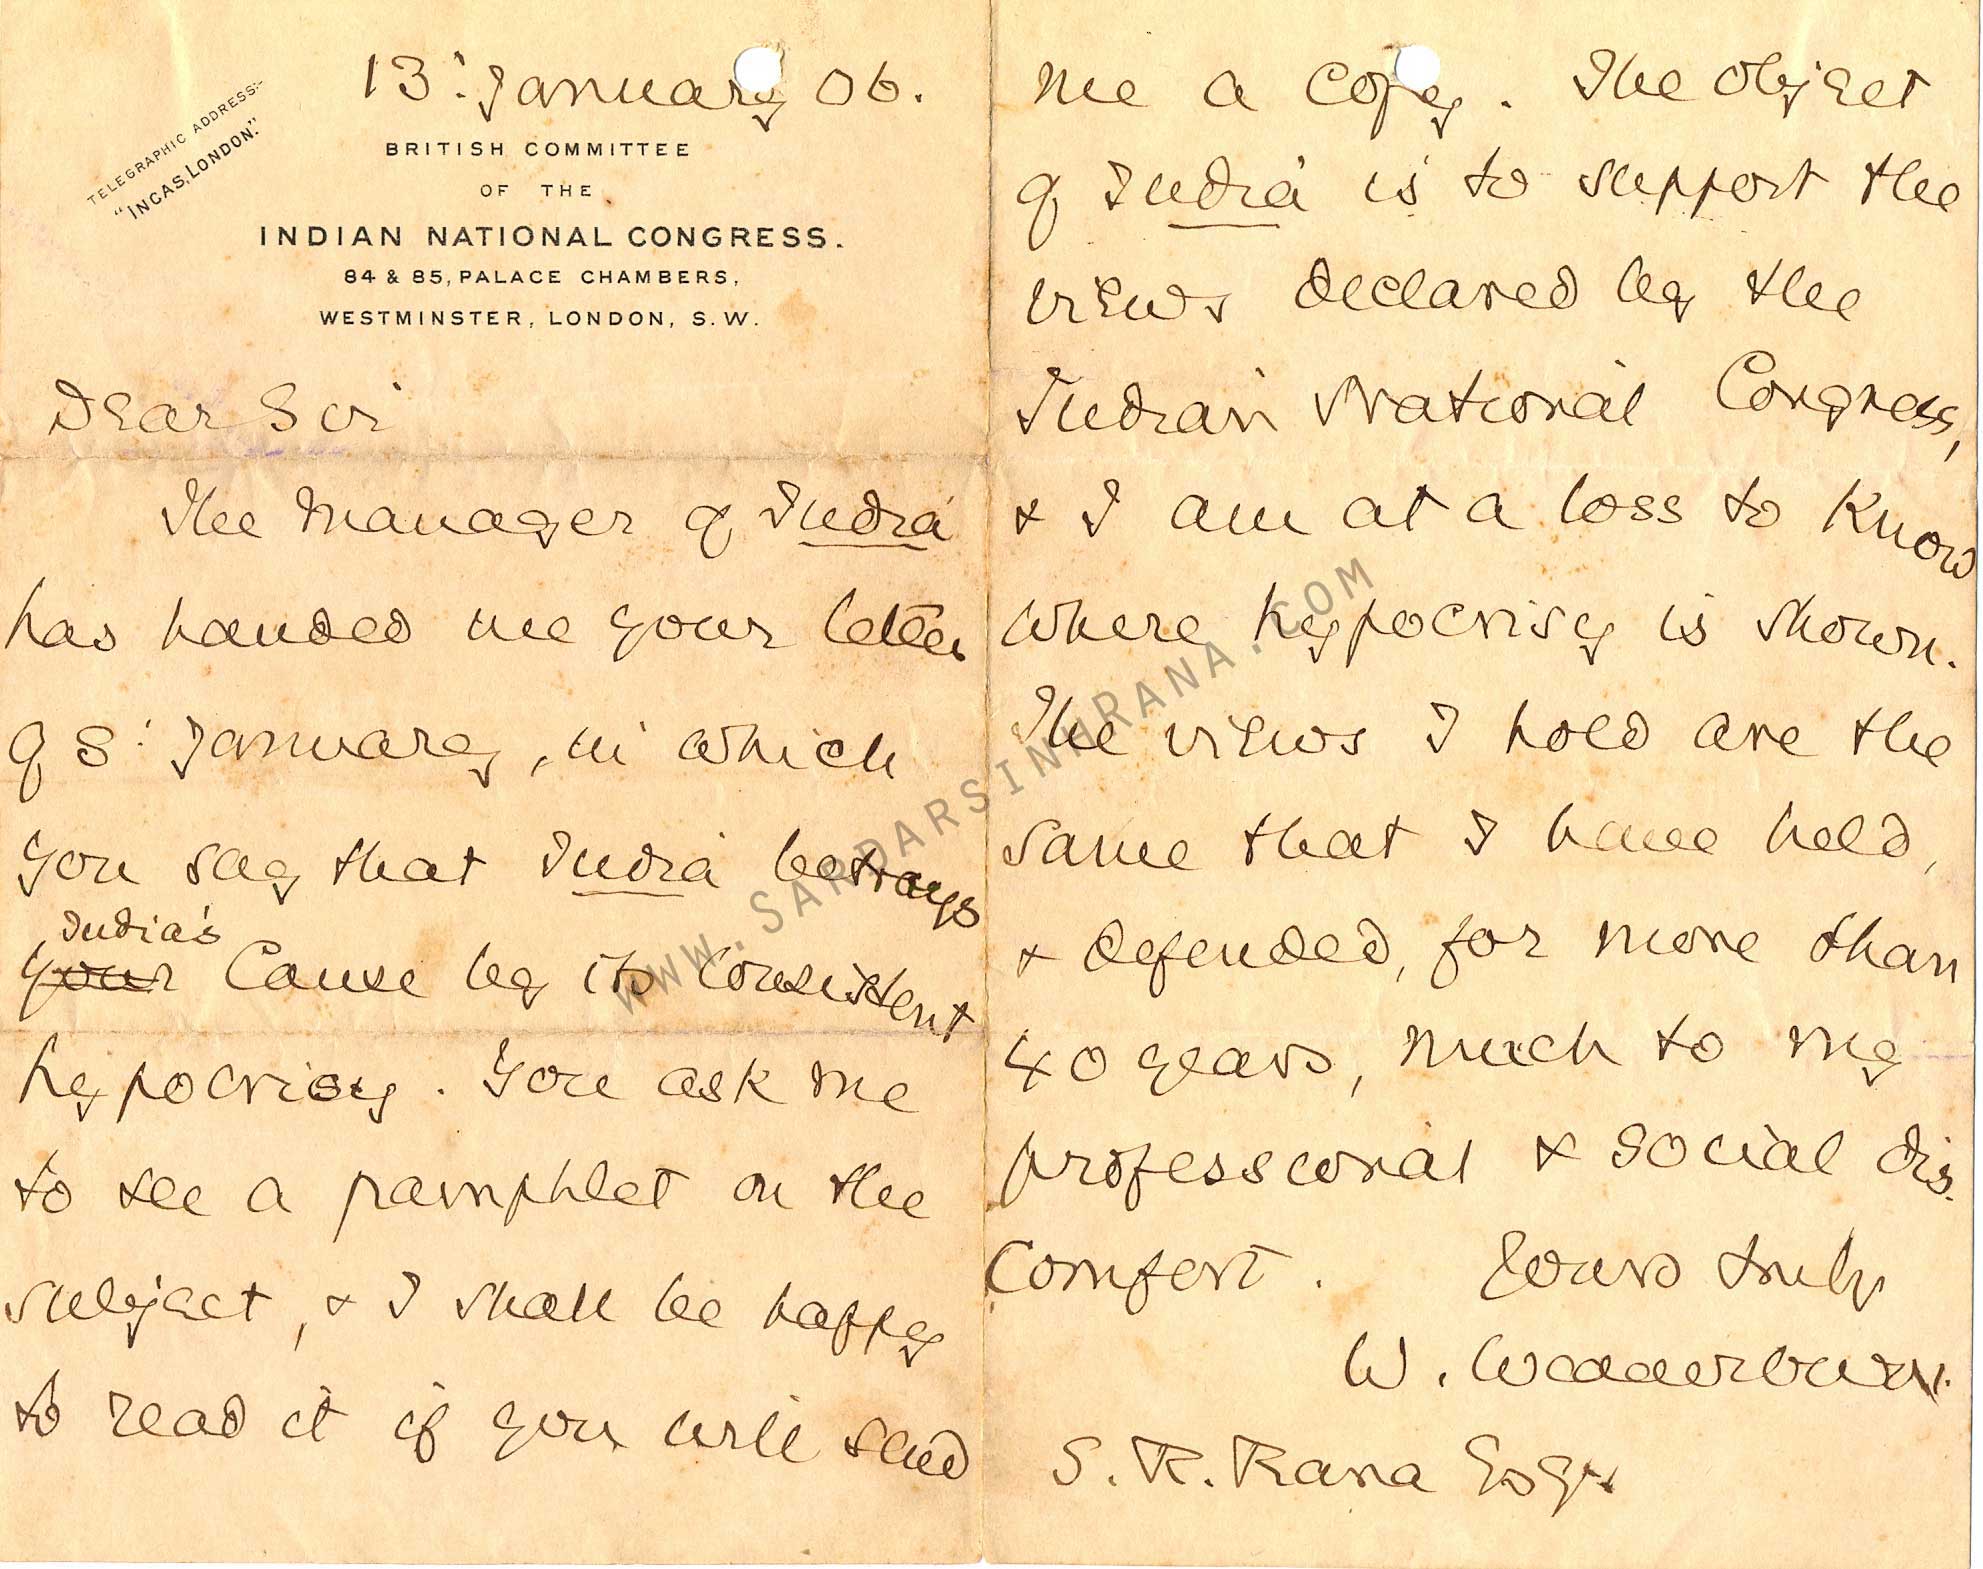 13: January 06.
TELEGRAPHIC ADDRESS:-
"INCAS, LONDON."
BRITISH COMMITTEE
OF THE
INDIAN NATIONAL CONGRESS.
84 & 85, PALACE CHAMBERS,
WESTMINSTER, LONDON, S.W.
Dear Sir
The Manager of India
has handed me your letter
of 8: January, in which
you say that India betrays
India's
your Cause by its consistent
hypocrisy. You ask me
to see a pamphlet on the
subject, & I shall be happy
to read it if you will send
me a copy. The object
of India is to support the
views declared by the
Indian National Congress,
& I am at a loss to know
where hypocrisy is shown.
The views I hold are the
same that I have held,
& defended, for more than
40 years, much to my
professional & social dis-
comfort. Yours truly
W. Wedderburn.
S. R. Rana Esqr
WWW.SARDARSINHRANA.COM